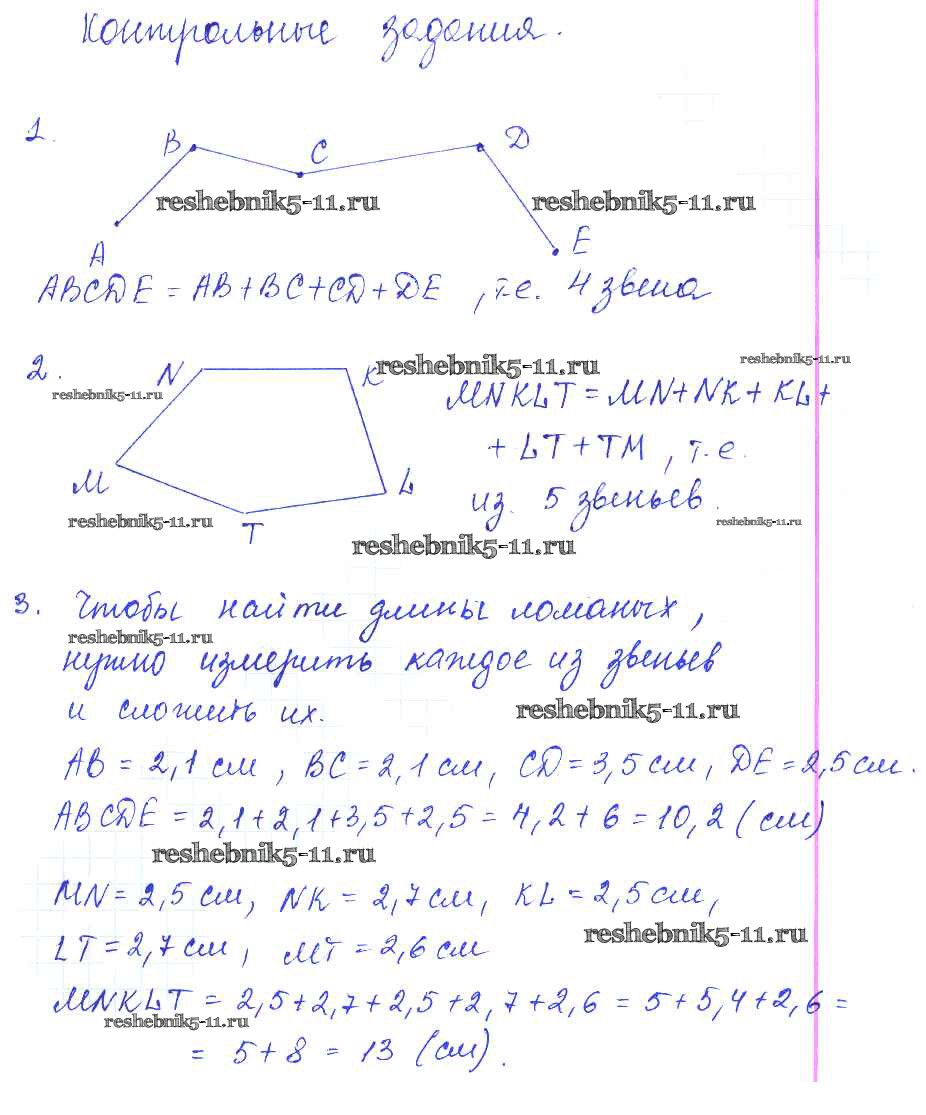 Контрольные задания.
1.
B
C
D
reshebnik5-11.ru reshebnik5-11.ru
A
E
ABCDE = AB + BC + CD + DE , т.е. 4 звена
2.
N
K
reshebnik5-11.ru
reshebnik5-11.ru
reshebnik5-11.ru
MNKLT = MN + NK + KL +
+ LT + TM , т.е.
M
L
из 5 звеньев.
reshebnik5-11.ru reshebnik5-11.ru
T
reshebnik5-11.ru
3. Чтобы найти длины ломаных,
reshebnik5-11.ru
нужно измерить каждое из звеньев
и сложить их.
reshebnik5-11.ru
AB = 2,1 см , BC = 2,1 см, CD = 3,5 см, DE = 2,5 см.
ABCDE = 2,1 + 2,1 + 3,5 + 2,5 = 4,2 + 6 = 10,2 (см)
reshebnik5-11.ru
MN = 2,5 см, NK = 2,7 см, KL = 2,5 см,
reshebnik5-11.ru
LT = 2,7 см, MT = 2,6 см
MNKLT = 2,5 + 2,7 + 2,5 + 2,7 + 2,6 = 5 + 5,4 + 2,6 =
reshebnik5-11.ru
= 5 + 8 = 13 (см).